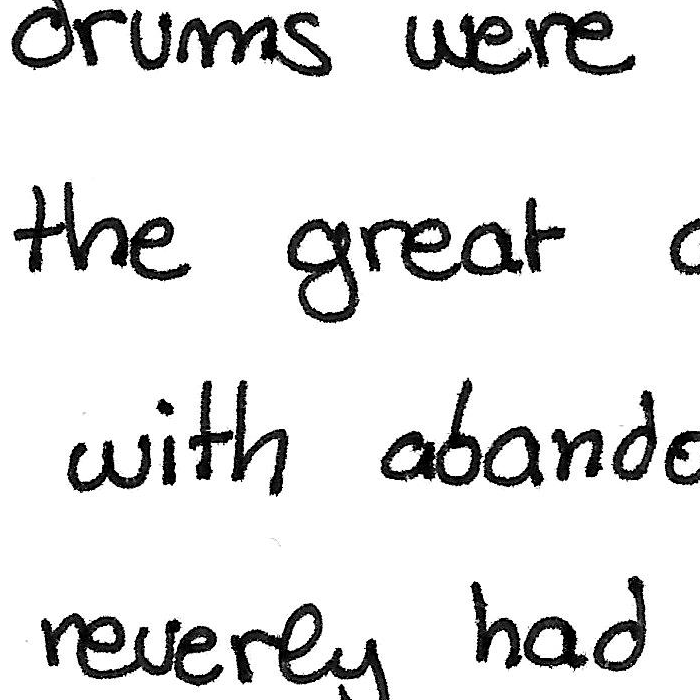 drums were
the great
with abando
reverly had